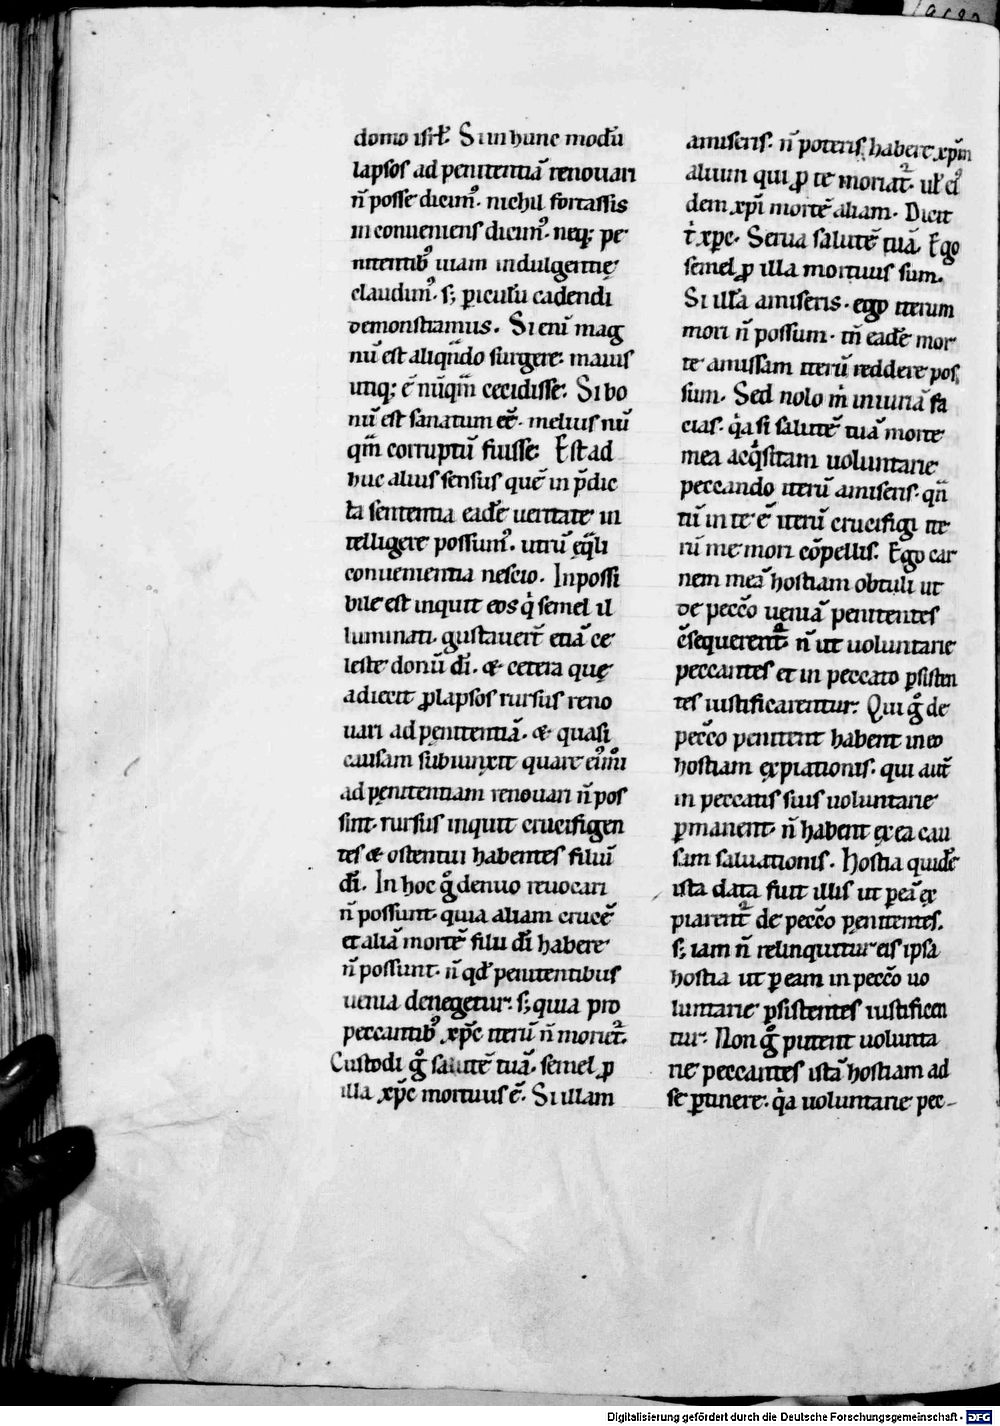 domo isrl̃. Si in hunc modũ
lapsos ad penitentiã renouari
ñ posse dicimꝰ. nichil fortassis
inconueniens dicimꝰ. neq; pe
nitentibꝰ uiam indulgentię
claudimꝰ. s; ꝑiculũ cadendi
demonstramus. Si enĩ mag
nũ est aliqñdo surgere. maius
utiq; ẽ nũqm̃ cecidisse. Si bo
nũ est sanatum eẽ. melius nũ
qm̃ corruptũ fuisse. Est ad
huc alius sensus quẽ in p̃dic
ta sententia eadẽ ueritate in
telligere possumꝰ. utrũ eq̃li
conuenientia nescio. Inpossi
bile est inquit eos q̇ semel il
luminati. gustauer̃t etiã ce
leste donũ dĩ. ⁊ cetera quę
adiecit ꝓlapsos rursus reno
uari ad pęnitentiã. ⁊ quasi
causam subiunxit quare eiꝰmoͥ
ad pęnitentiam renouari ñ pos
sint. rursus inquit crucifigen
tes ⁊ ostentui habentes filiũ
dĩ. In hoc g̊ denuo reuocari
ñ possunt. quia aliam crucẽ
et aliã mortẽ filii dĩ habere
ñ possunt. ñ qđ penitentibus
uenia denegetur. s; quia pro
peccantibꝰ xp̃c iterũ ñ morietᷣ.
Custodi g̊ salutẽ tuã. semel ꝓ
illa xp̃c mortuus ẽ. Si illam
amiseris. ñ poteris habere xp̃m
alium qui ꝓ te moriatᷣ. ul̃ eiꝰ
dem xp̃i mortẽ aliam. Dicit
t̉ xp̃c. Serua salutẽ tuã. Ego
semel ꝓ illa mortuus sum.
Si illã amiseris. ego iterum
mori ñ possum. tñ eadẽ mor
te amissam iterũ reddere pos
sum. Sed nolo m̉ iniuriã fa
cias. q̉a si salutẽ tuã morte
mea acq̉sitam uoluntarie
peccando iterũ amiseris. qñ
tũ in te ẽ iterũ crucifigi ite
rũ me mori cõpellis. Ego car
nem meã hostiam obtuli ut
de pecc̃o ueniã penitentes
c̃sequerentᷣ. ñ ut uoluntarie
peccantes et in peccato ꝑsisten
tes iustificarentur. Qui g̊ de
pecc̃o penitent habent in eo
hostiam expiationis. qui aut̃
in peccatis suis uoluntarie
ꝑmanent. ñ habent ex ea cau
sam saluationis. Hostia quidẽ
ista data fuit illis ut ꝑ eã ex
piarentᷣ de pecc̃o pęnitentes.
s; iam ñ relinquitur eis ipsa
hostia ut ꝑ eam in pecc̃o uo
luntarie ꝑsistentes iustificen
tur. Non g̊ putent uolunta
rie peccantes istã hostiam ad
se ꝑtinere. q̉a uoluntarie pec-
Digitalisierung gefördert durch die Deutsche Forschungsgemeinschaft - DFG